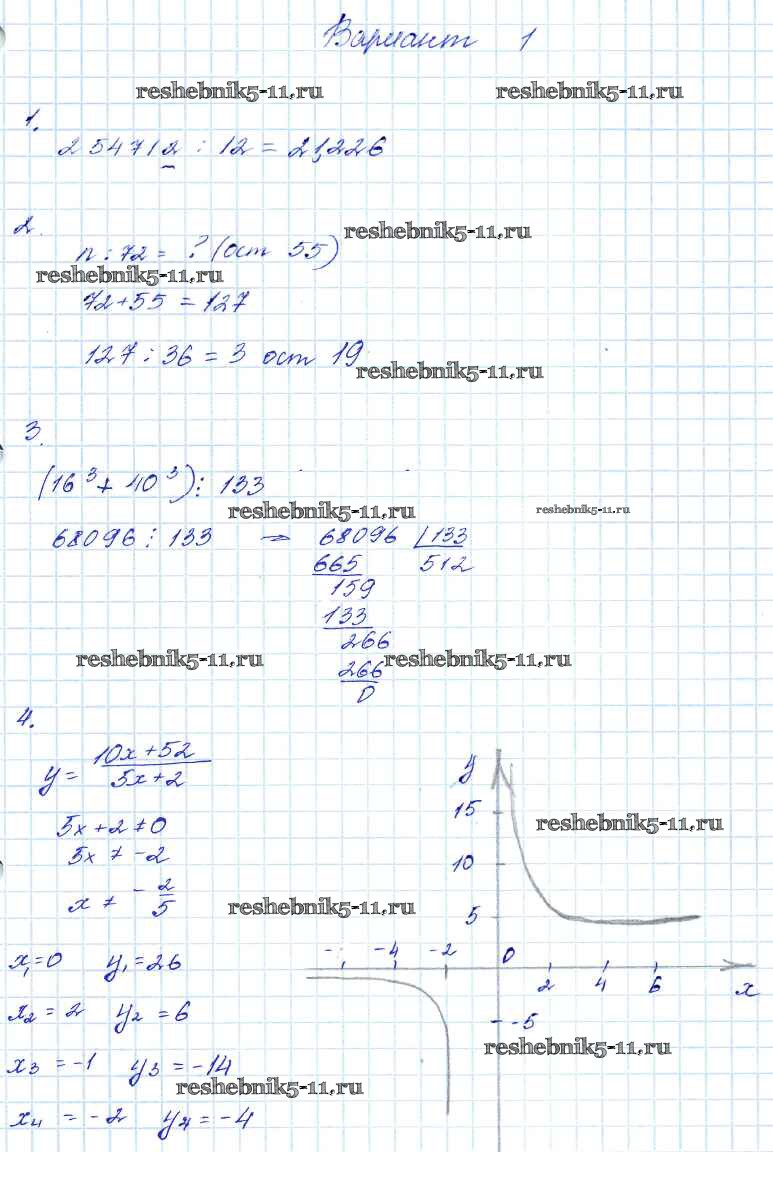 Вариант 1
reshebnik5-11.ru reshebnik5-11.ru
1.
254712 : 12 = 21226
2.
reshebnik5-11.ru
n : 72 = ? (ост 55)
reshebnik5-11.ru
72+55 = 127
127 : 36 = 3 ост 19
reshebnik5-11.ru
3.
(16³ + 40³) : 133
reshebnik5-11.ru reshebnik5-11.ru
68096 : 133 → 68096 | 133
665 512
159
133
266
reshebnik5-11.ru 266 reshebnik5-11.ru
0
4.
y = (10x + 52)/(5x + 2)
5x + 2 ≠ 0
5x ≠ -2
x ≠ - 2/5
reshebnik5-11.ru
x₁=0 y₁=26
x₂ = 2 y₂ = 6
x₃ = -1 y₃ = -14
reshebnik5-11.ru
x₄ = -2 y₄ = -4
y
15
reshebnik5-11.ru
10
5
-4 -2 0
2 4 6 x
-5
reshebnik5-11.ru